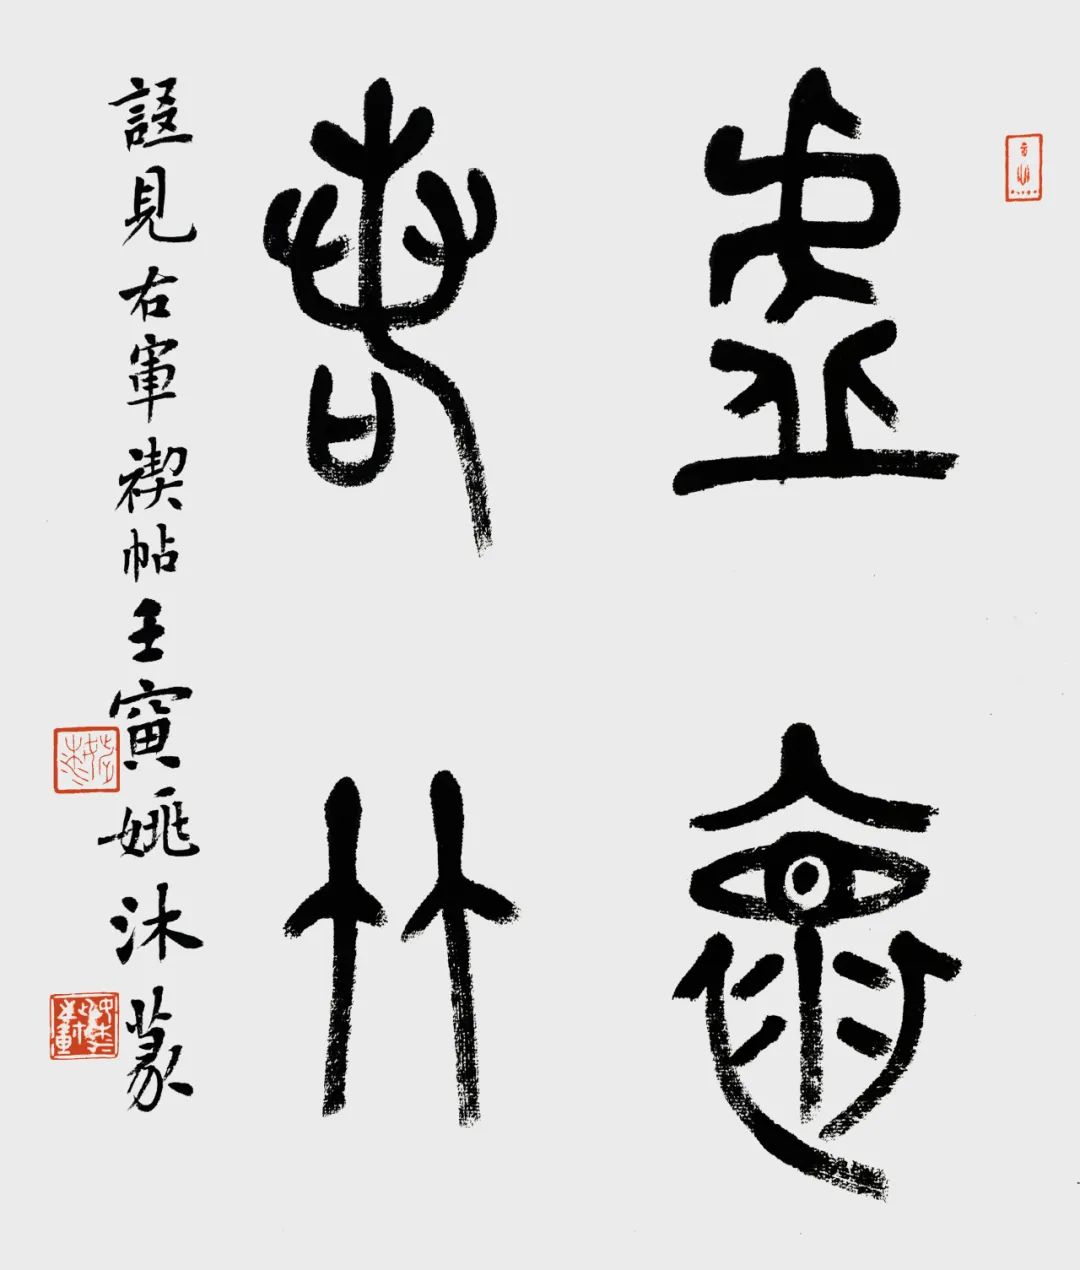 虛懷
若竹
語見右軍禊帖壬寅姚沐篆